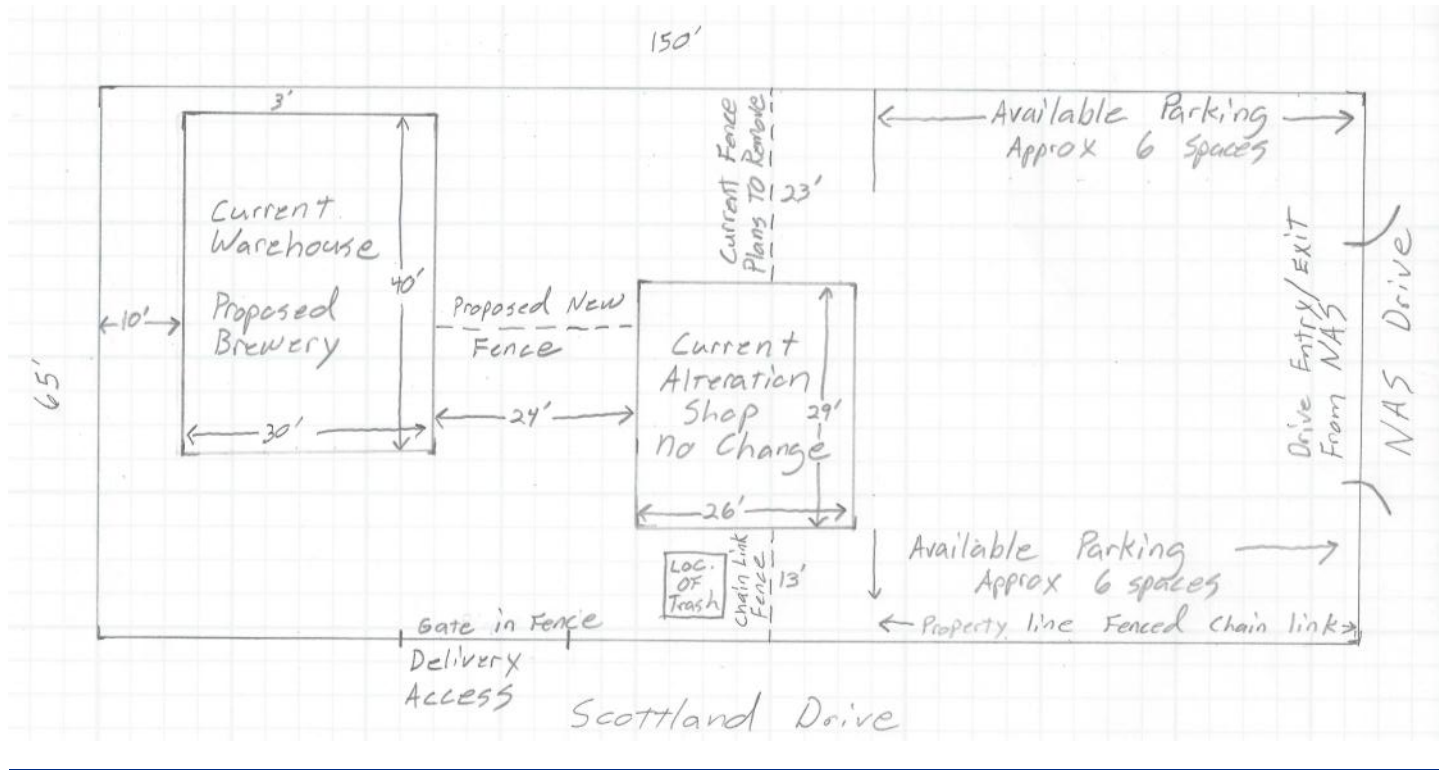 150'
3'
Current
Warehouse
Proposed
Brewery
40'
30'
10'
65'
Proposed New
Fence
24'
Current Fence
Plans To Remove
23'
Current
Alteration
Shop
No Change
29'
26'
Loc.
OF
Trash
Chain Link
Fence
13'
Available Parking
Approx 6 Spaces
Drive Entry/Exit
From NAS
NAS Drive
Available Parking
Approx 6 spaces
Property line Fenced Chain link
Gate in Fence
Delivery
Access
Scottland Drive